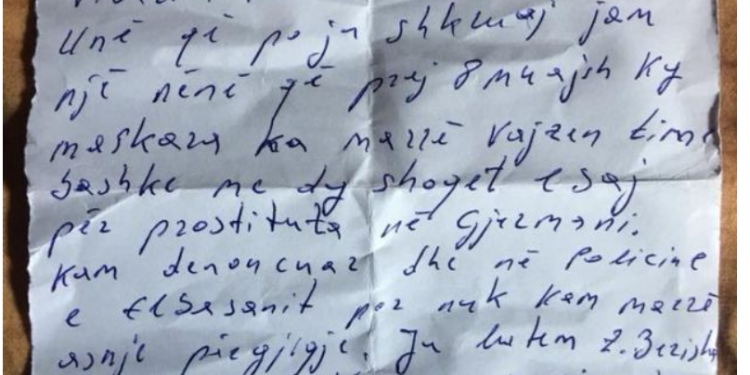 Unë që po ju shkruaj jam
një nënë që prej 8 muajsh ky
maskara ka marrë vajzen time
bashkë me dy shoqet e saj
për prostituta në Gjermani.
Kam denoncuar dhe në Policinë
e Elbasanit por nuk kam marrë
asnje përgjigje. Ju lutem Z. Berisha